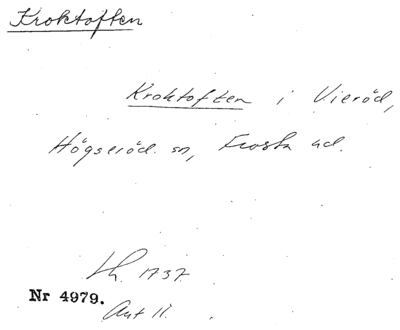 Kroktoften
Kroktoften i Vieröd,
Högseröd sn, Frosta hd.
Lh. 1737.
Nr 4979.
Avt 11.